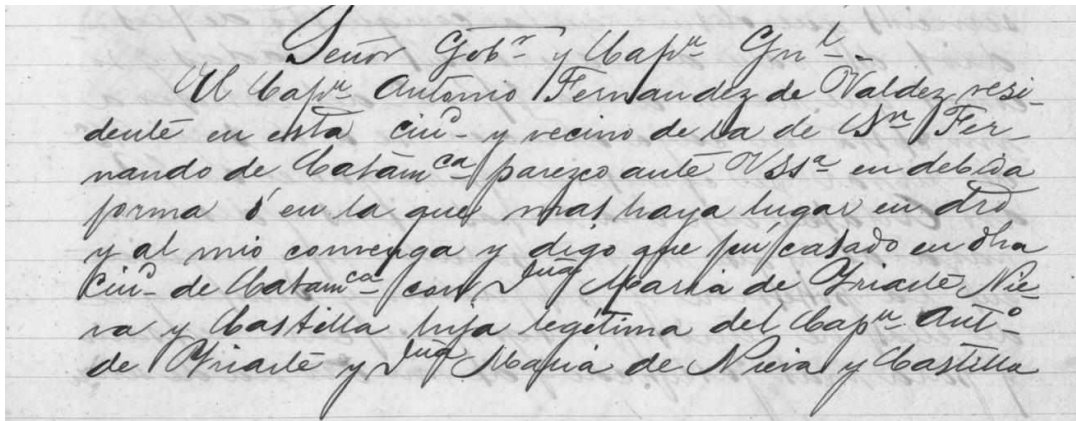 Señor Gobr y Capn Gnl.
El Capn Antonio Fernandez de Valdez resi-
dente en esta ciud y vecino de la de Sn Fer-
nando de Catamca parezco ante VSSa en debida
forma ó en la que mas haya lugar en dro
y al mio convenga y digo que fuí casado en dha
ciud de Catamca con Dña Maria de Iriarte Nie-
va y Castilla hija legítima del Capn Anto
de Iriarte y Dña Maria de Nieva y Castilla